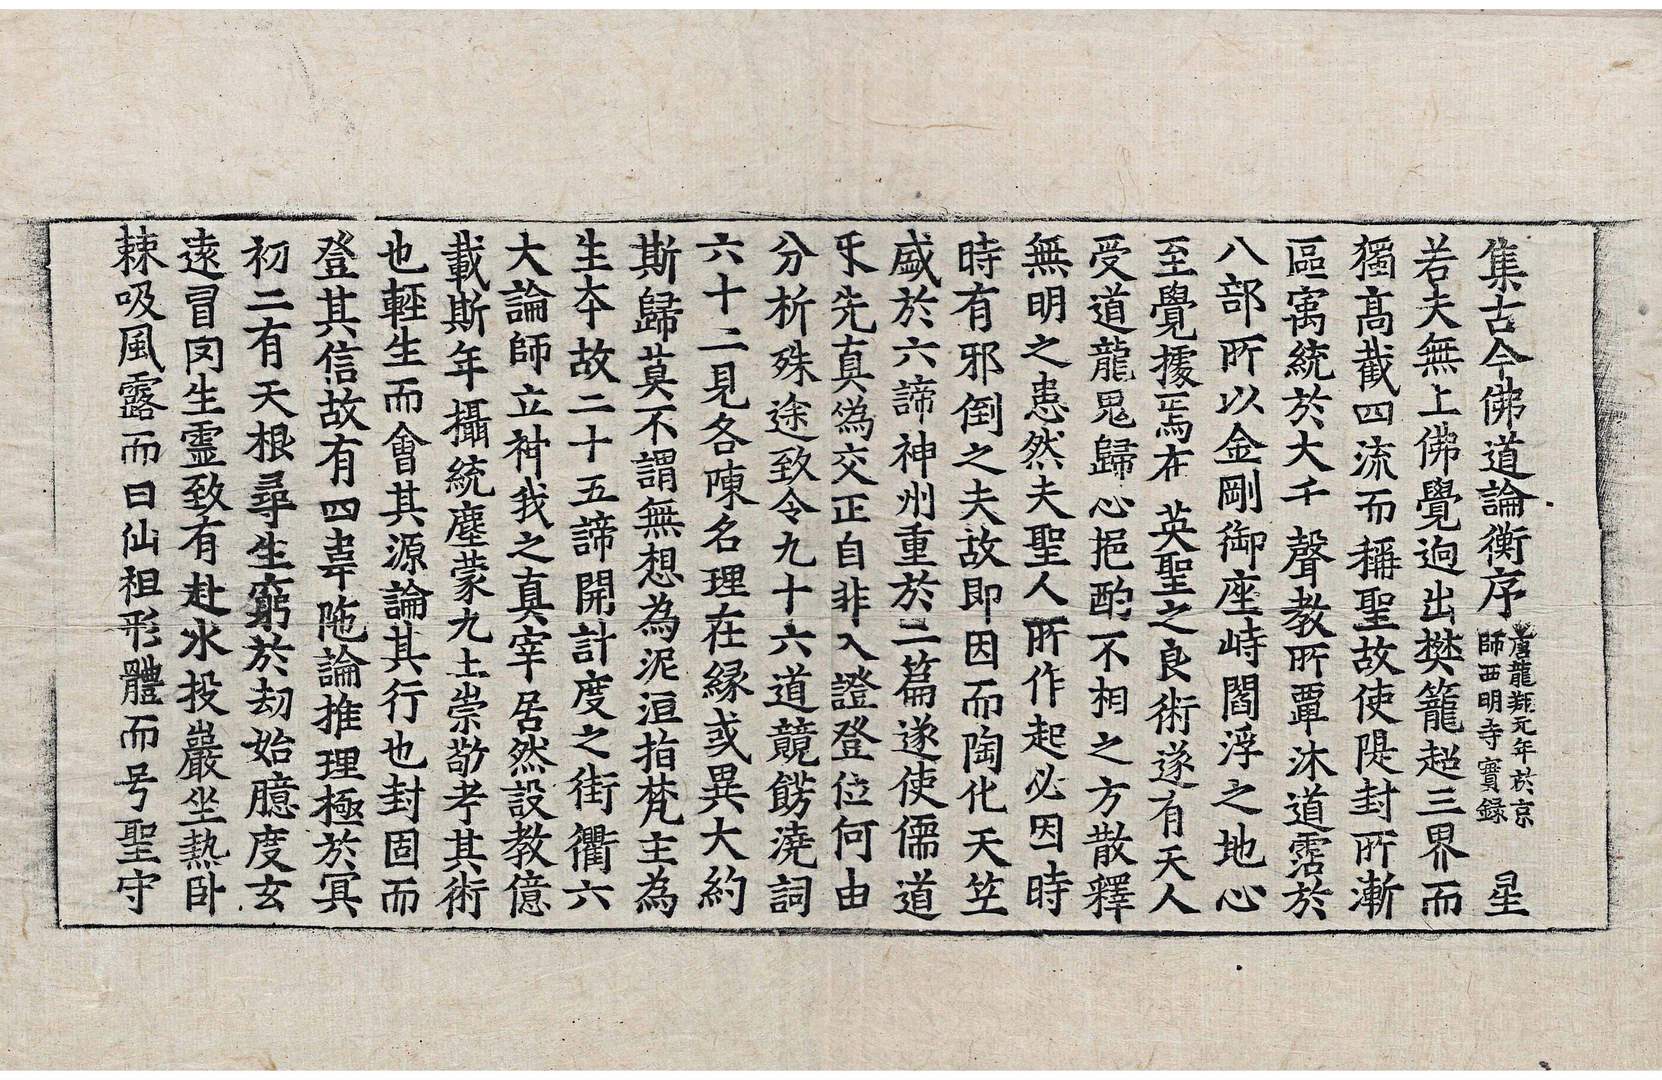 集古今佛道論衡序 唐龍朔元年於京師西明寺實録 星
若夫無上佛覺逈出樊籠超三界而
獨髙截四流而稱聖故使隄封所漸
區寓統於大千聲教所覃沐道霑於
八部所以金剛御座峙閻浮之地心
至覺據焉在英聖之良術遂有天人
受道龍鬼歸心挹酌不相之方散釋
無明之患然夫聖人所作起必因時
時有邪倒之夫故即因而陶化天竺
盛於六諦神州重於二篇遂使儒道
乐先真偽交正自非入證登位何由
分析殊途致令九十六道競餝澆詞
六十二見各陳名理在縁或異大約
斯歸莫不謂無想為泥洹指梵主為
生夲故二十五諦開計度之街衢六
大論師立神我之真宰居然設教億
載斯年攝統塵蒙九土崇敬考其術
也輕生而會其源論其行也封固而
登其信故有四韋陁論推理極於冥
初二有天根尋生窮於劫始臆度玄
遠冒罔生靈致有赴水投巖坐熱卧
棘吸風露而曰仙祖形體而号聖守